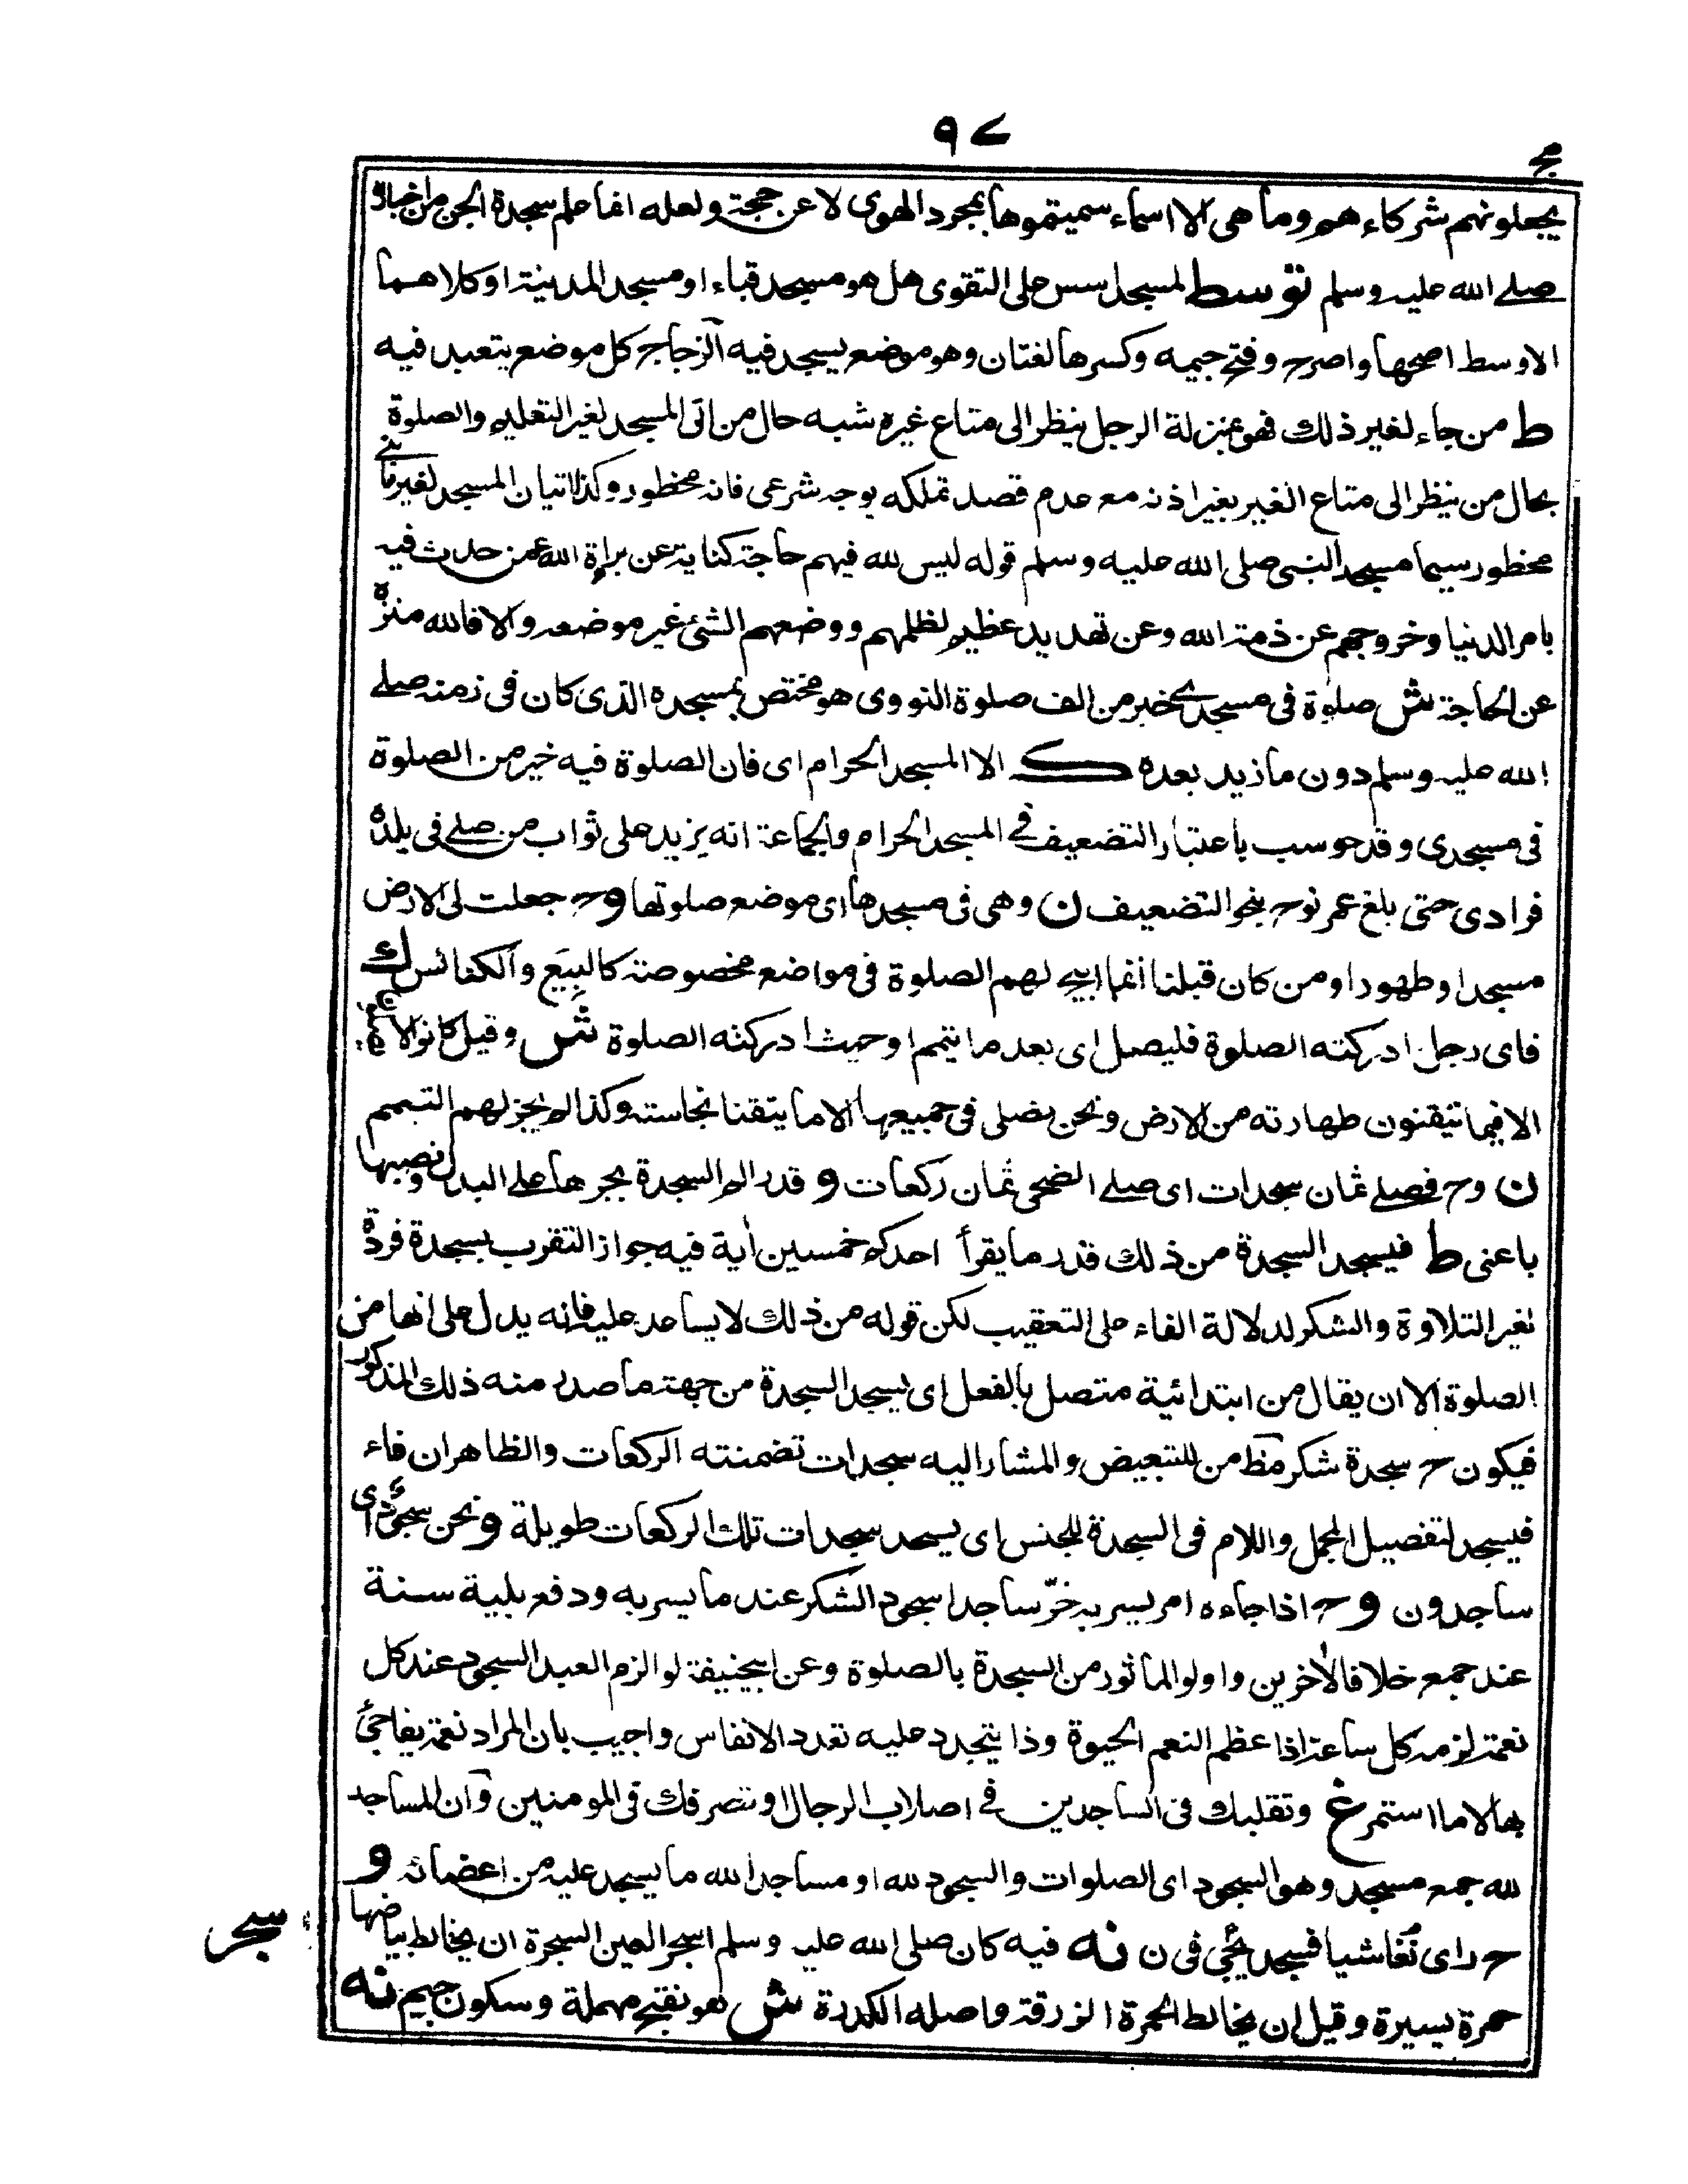 ٩٧
مج
يجعلونهم شركاء هم وما هى الا اسماء سميتموها بمجرد الهوى لا عن حجة ولعله انما علم سجدة الجن من اخباره
صلے الله عليه وسلم توسط لمسجد اسس على التقوى هل هو مسجد قباء او مسجد المدينة او كلاهما
الاوسط اصحها واصرح وفتح جيمه وكسرها لغتان وهو موضع يسجد فيه الزجاج كل موضع يتعبد فيه
ط من جاء لغير ذلك فهو بمنزلة الرجل ينظر الى متاع غيره شبه حال من اتى المسجد لغير التعليم والصلوة
بحال من ينظر الى متاع الغير بغير اذنه مع عدم قصد تملكه بوجه شرعى فانه محظور وكذا اتيان المسجد لغير ما بنے
محظور سيما مسجد النبى صلى الله عليه وسلم قوله ليس لله فيهم حاجة كناية عن براءة الله عمن حدث فيه
بامر الدنيا وخروجهم عن ذمة الله وعن تهديد عظيم لظلمهم ووضعهم الشئ غير موضعه والا فالله منزه
عن الحاجة ش صلوة فى مسجدے خير من الف صلوة النووى هو مختص بمسجده الذى كان فى زمنه صلے
الله عليه وسلم دون ما زيد بعده ك الا المسجد الحرام اى فان الصلوة فيه خير من الصلوة
فى مسجدى وقد حوسب باعتبار التضعيف فے المسجد الحرام والجماعة انه يزيد على ثواب من صلے فى بلده
فرادى حتى بلغ عمر نوح بنحو التضعيف ن وهى فى مسجدها اى موضع صلوتها وح جعلت لى الارض
مسجدا وطهورا ومن كان قبلنا انما ابيح لهم الصلوة فى مواضع مخصوصة كالبِيَع والكنائس ك
فاى رجل ادركته الصلوة فليصل اى بعد ما تيمم او حيث ادركته الصلوة ش وقيل كانوا لا يصلون
الا فيما تيقنون طهارته من الارض ونحن نصلى فى جميعها الا ما يتقنا نجاسته وكذا لم يجز لهم التيمم
ن وح فصلے ثمان سجدات اى صلے الضحى ثمان ركعات و قدر الم السجدة بجرها على البدل ونصبها
باعنى ط فيسجد السجدة من ذلك قدر ما يقرأ احدكم خمسين أية فيه جواز التقرب بسجدة فردة
لغير التلاوة والشكر لدلالة الفاء على التعقيب لكن قوله من ذلك لا يساعد عليه فانه يدل على انها من
الصلوة الا ان يقال من ابتدائية متصل بالفعل اى يسجد السجدة من جهته ما صدر منه ذلك المذكور
فيكون ح سجدة شكر مظ من للتبعيض والمشار اليه سجدات تضمنته الركعات والظاهر ان فاء
فيسجد لتفصيل المجمل واللام فى السجدة للجنس اى يسجد سجدات تلك الركعات طويلة و نحن سجود اى
ساجدون وح اذا جاءه امر يسر به خرّ ساجدا سجود الشكر عند ما يسر به ودفع بلية سنة
عند جمع خلافا لأخرين واولو الماثور من السجدة بالصلوة وعن ابيحنيفة لو الزم العبد السجود عند كل
نعمة لزمه كل ساعة اذا عظم النعم الحيوة وذا يتجدد عليه تعدد الانفاس واجيب بان المراد نعمة يفاجئ
بها لا ما استمر غ وتقلبك فى الساجدين فے اصلاب الرجال او تتصرفك فى المومنين وآن المساجد
لله جمع مسجد وهو السجود اى الصلوات والسجود لله او مساجد الله ما يسجد عليه من اعضائه و
ح راى نغاشيا فسجد يجئ فى ن نه فيه كان صلى الله عليه وسلم اسجر العين السجرة ان يخالط بياضها
سجر
حمرة يسيرة وقيل ان يخالط الحمرة الزرقة واصله الكدرة ش هو بفتح مهملة وسكون جيم نه